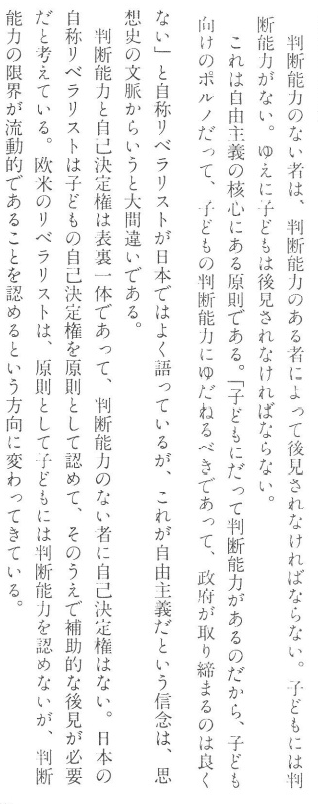 判断能力のない者は、判断能力のある者によって後見されなければならない。子どもには判
断能力がない。ゆえに子どもは後見されなければならない。
これは自由主義の核心にある原則である。「子どもにだって判断能力があるのだから、子ども
向けのポルノだって、子どもの判断能力にゆだねるべきであって、政府が取り締まるのは良く
ない」と自称リベラリストが日本ではよく語っているが、これが自由主義だという信念は、思
想史の文脈からいうと大間違いである。
判断能力と自己決定権は表裏一体であって、判断能力のない者に自己決定権はない。日本の
自称リベラリストは子どもの自己決定権を原則として認めて、そのうえで補助的な後見が必要
だと考えている。欧米のリベラリストは、原則として子どもには判断能力を認めないが、判断
能力の限界が流動的であることを認めるという方向に変わってきている。